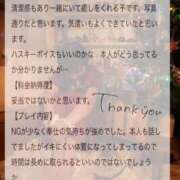 清潔感もあり一緒にいて癒しをくれる子です。写真
通りだと思います。気遣いもよくできていたと思い
ます。
ハスキーボイスもいいのかな　本人がどう思ってる
か分かりませんが…
【料金納得度】
妥当ではないかと思います。
【プレイ内容】
Thank you
NGが少なく奉仕の気持ちが強めでした。本人も話し
てましたがイキにくい体質になってしまってるので
時間は長めに取られるといいのではないでしょう
か